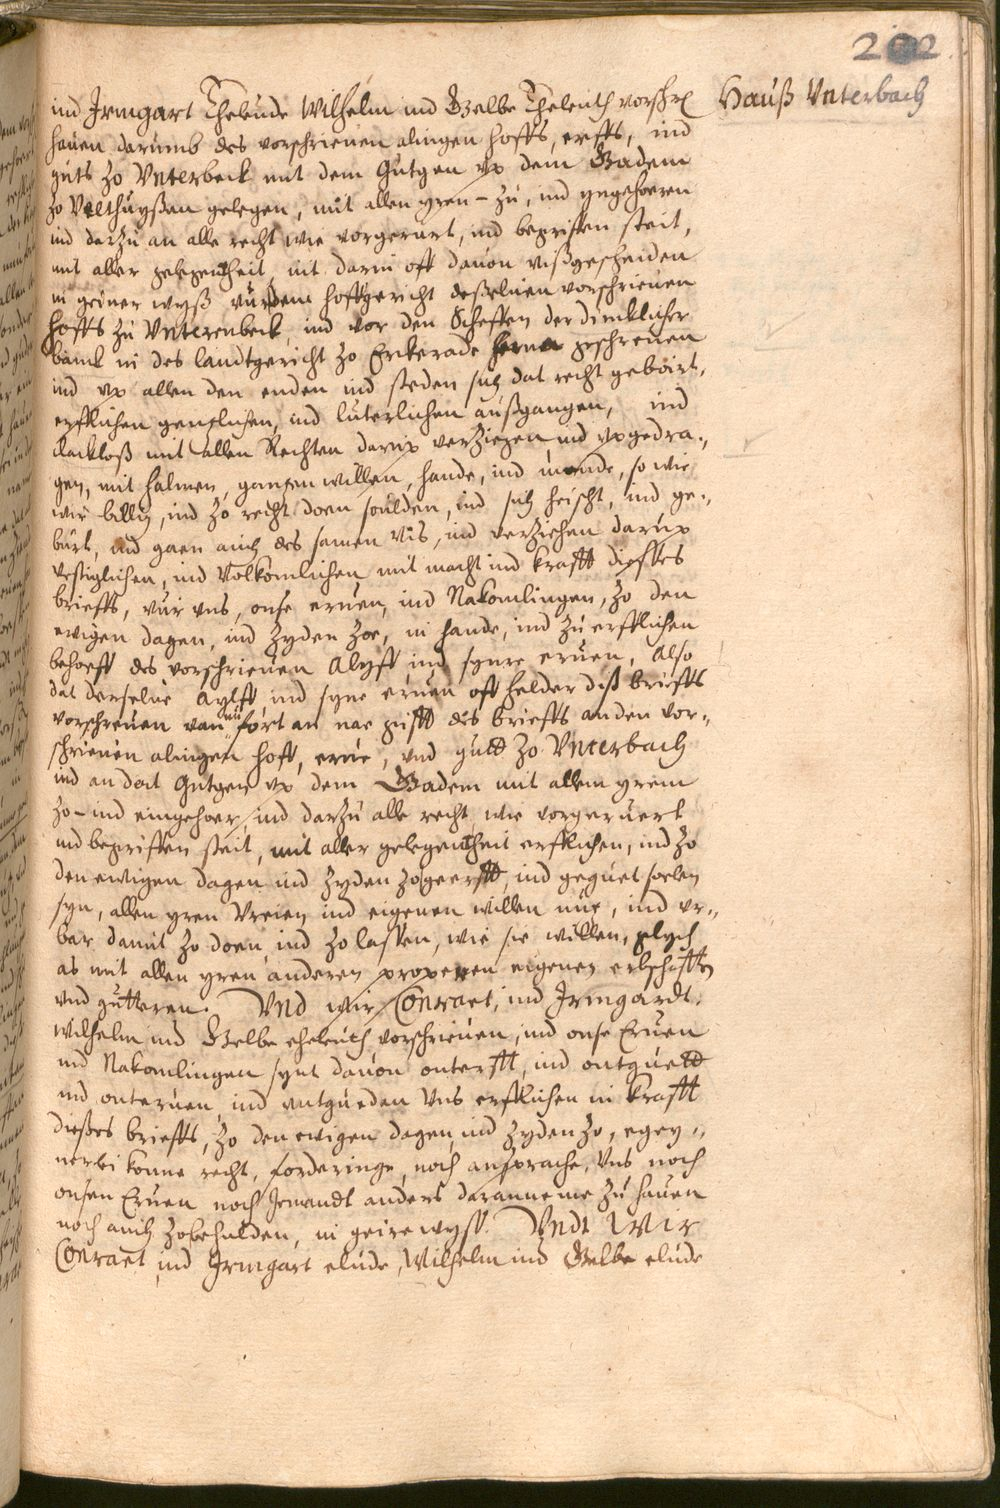 202
Hauß Vnterbach
ind Irmgart Eheleude Wilhelm ind Belbe Eheleuth vorschrl
hauen darumb des vorschrieuen alingen hoffs, erffs, ind
guts zo Vnterbeck mit dem Gutgen vp dem Badem
zo Velthuyßen gelegen, mit allen yren - zu, ind yngehoeren
ind darzu an alle recht wie vorgerurt, ind begriffen steit,
mit aller gelegentheit nit darin oft dauon vißgescheiden
in geiner wyß vur dem hoffgericht desseluen vorschrieuen
hoffs zu Vnterenbeck, ind vor den Scheffen der
banck in des landtgericht zo Erkerade herna geschreuen
ind vp allen den enden ind steden sich dat recht geboirt,
erfflichen genslichen, ind luterlichen außgangen, ind
clackloß mit allen Rechten darup verziegen ind vpgedra-,
gen, mit halmen, gantzen willen, hande, ind munde, so wie
wir billig, ind zo recht doen soulden, ind sich heischt, ind ge-,
burt, ind gaen auch des samen vis, ind verziehen darup
vestiglichen, ind Volkomlichen, mit macht ind krafft dieffes
brieffs, vur vns, onse eruen, ind Nakomlingen, zo den
ewigen dagen, ind zyden zoe, in hande, ind zu erfflichen
behoeff des vorschrieuen Alyff ind synre eruen, Also
dat derselue Aylff, ind syne eruen oft helder diß brieffs
vorschreuen van nu fort an nae gifft des brieffs an den vor-,
schrieuen alingen hoff, erue, vnd gutt zo Vnterbach
ind an dat Gutgen vp dem Badem mit allem yrem
zo - ind eingehoer, ind darzu alle recht, wie vorgeruert
ind begriffen steit, mit aller gelegentheit erfflichen, ind zo
den ewigen dagen ind zyden zogeerfft, ind geguet soelen
syn, allen yren Vreien ind eigenen willen nutz, ind vr-,
bar, damit zo doen, ind zo lassen, wie sie willen, glych
as mit allen yren anderen properen eigenen erbschafften
vnd gutteren. Vnd wir Conraet, ind Irmgardt,
Wilhelm ind Belbe eheleuth vorschrieuen, ind onse Eruen
ind Nakomlingen synt dauon onterfft, ind ontguett
ind onteruen, ind vntgueden vns erfflichen in krafft
dießes brieffs, zo den ewigen dagen, ind zyden zo, egey-,
nerlei konne recht, forderinge, noch ansprache, Vns noch
onsen Eruen noch Iemandt anders daranne me zu hauen
noch auch zobehalden, in geire wyß. Vndt Wir
Conraet, ind Irmgart elude, Wilhelm ind Belbe elude